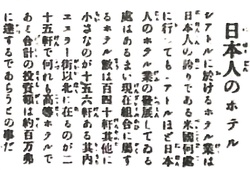 日本人のホテル
シヤトルに於けるホテル業は
日本人の誇りである米國何處
に行つてもシアトルほど日本
人のホテル業の發展してゐる
處はあるまい現在組合に屬す
るホテル數は百四十軒其他に
小さなのが十五六軒ある其内
エスラー街以北に在るのが二
十五軒で何れも高等ホテルで
ある合計の投資額は約百万弗
に達するであらうとの事だ